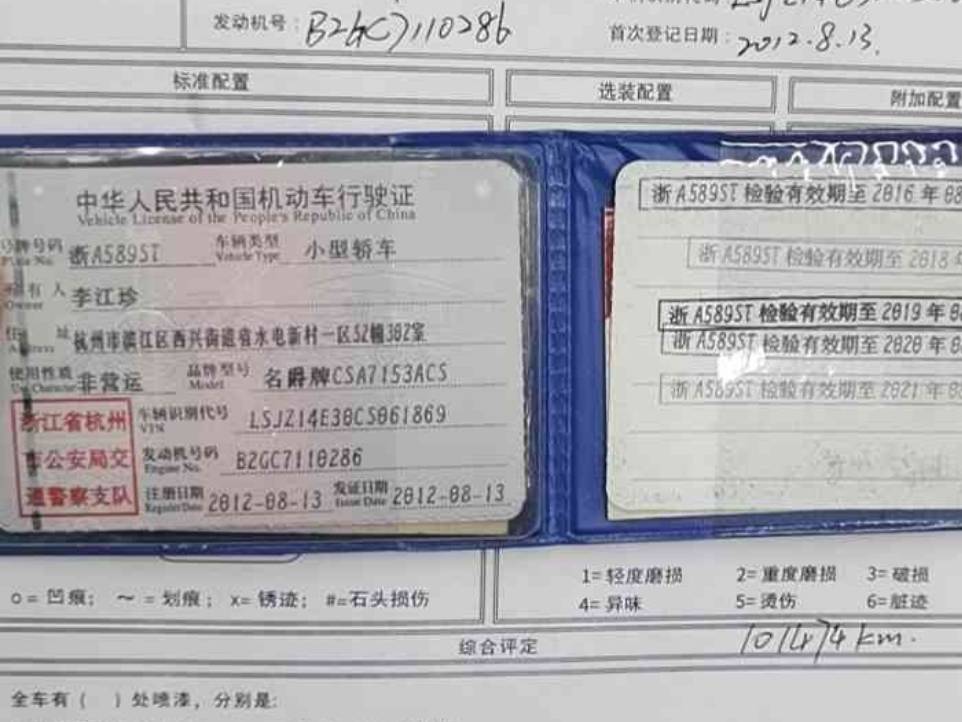 发动机号：B2GC7110286
首次登记日期：2012.8.13.
标准配置
选装配置
附加配置
中华人民共和国机动车行驶证
Vehicle License of the People's Republic of China
号牌号码 浙A589ST 车辆类型 小型轿车
Plate No. Vehicle Type
所有人 李江珍
Owner
住址 杭州市滨江区西兴街道省水电新村一区52幢302室
Address
使用性质 非营运 品牌型号 名爵牌CSA7153ACS
Use Character Model
浙江省杭州
市公安局交
通警察支队
车辆识别代号 LSJZ14E30CS061869
VIN
发动机号码 B2GC7110286
Engine No.
注册日期 2012-08-13 发证日期 2012-08-13
Register Date Issue Date
浙A589ST 检验有效期至 2016 年 08
浙A589ST 检验有效期至 2018 年
浙A589ST 检验有效期至 2019 年 08
浙A589ST 检验有效期至 2020 年 08
浙A589ST 检验有效期至 2021 年 08
o= 凹痕； ～ = 划痕； x= 锈迹； #=石头损伤
1= 轻度磨损 2= 重度磨损 3= 破损
4= 异味 5= 烫伤 6= 脏迹
综合评定
101474km.
全车有（ ）处喷漆，分别是: